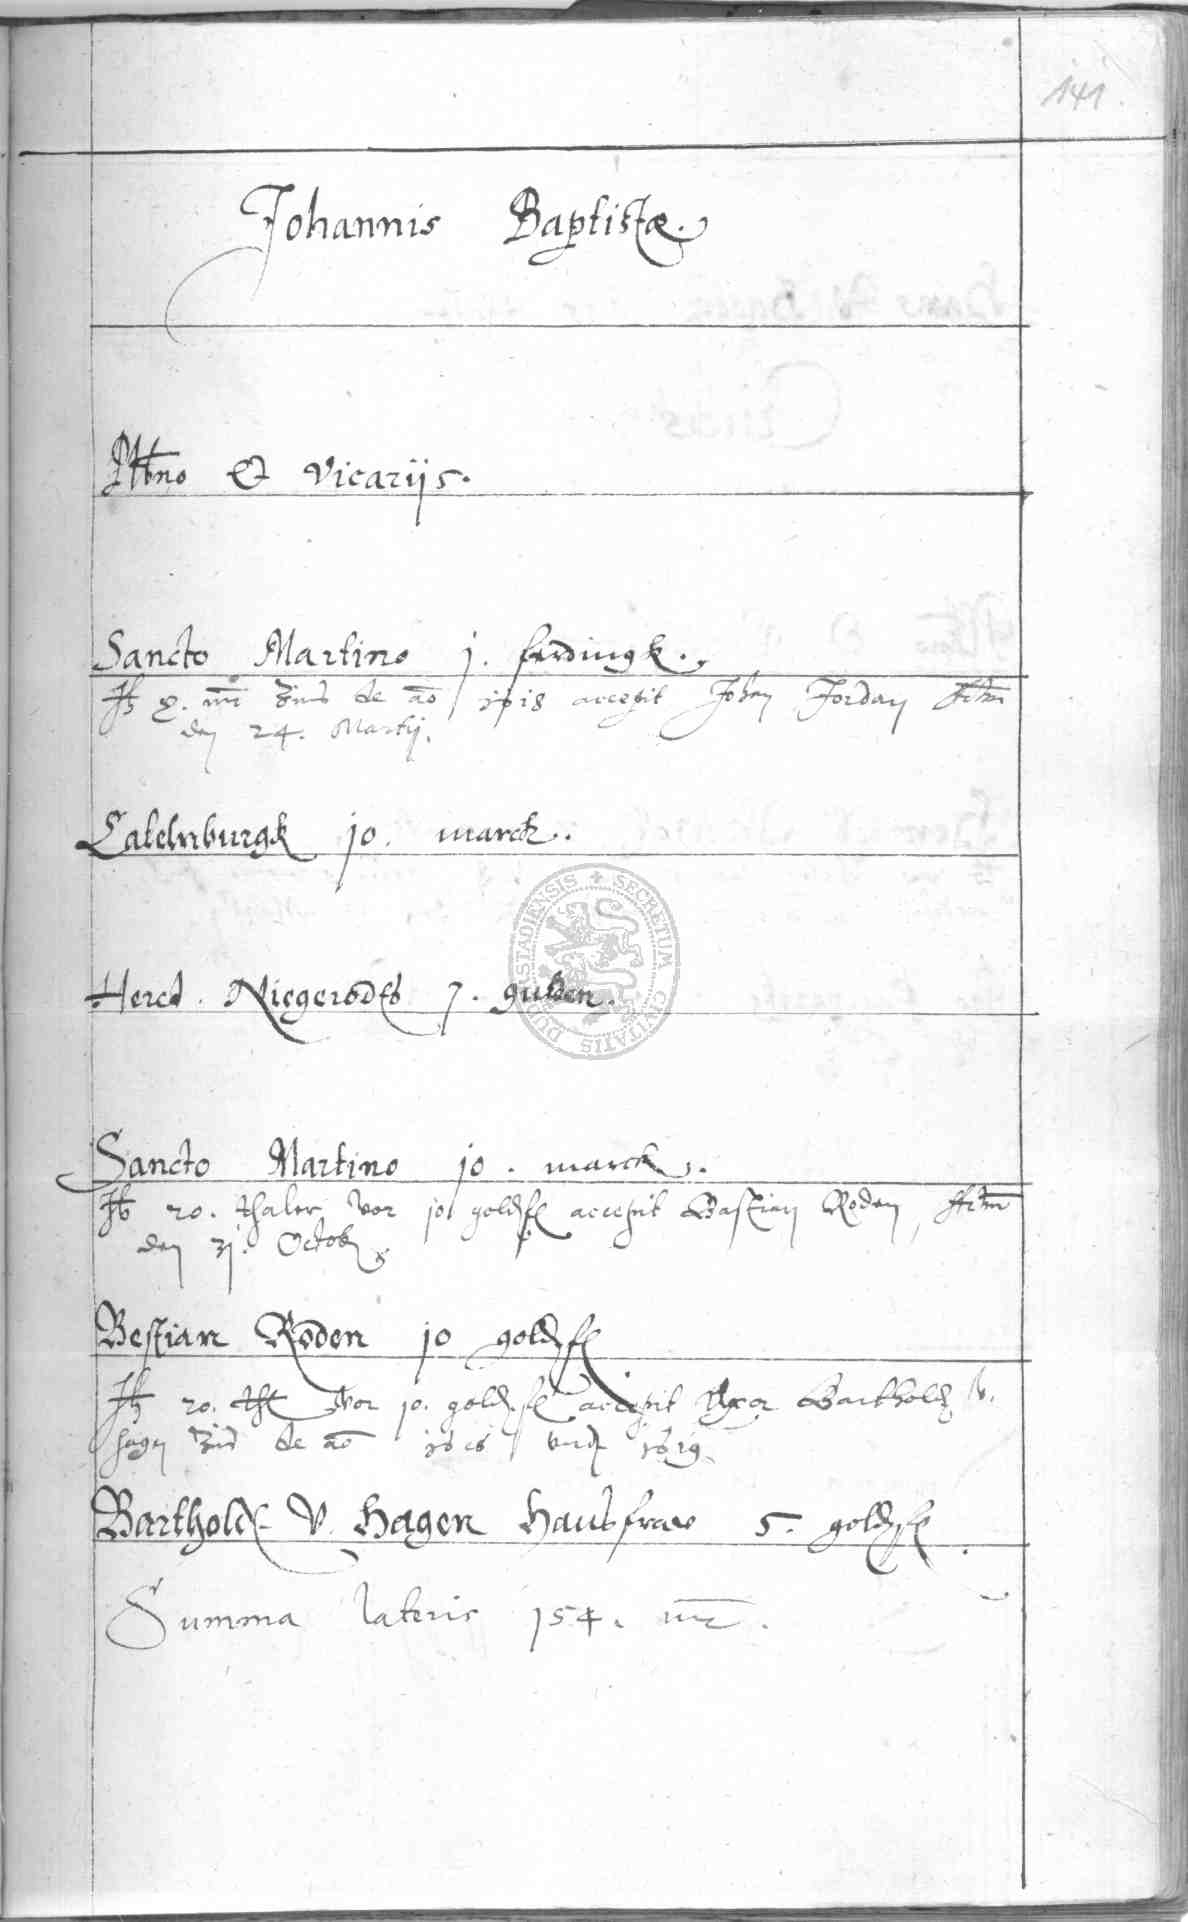 141
Johannis Baptistæ.
Plbno et Vicarijs.
Sancto Martino j. ferdingk.
mr Zins de ao 1618 accepit Johan Jordan
den 24. Martij.
Catelnburgk jo. marck.
Hered. Niegerodes 7. gulden.
Sancto Martino jo. marck.
20. thaler vor jo goldfl accepit Bastian Roden,
den 3j. Octob
Bestian Roden jo goldfl
20. thl vor jo. goldfl accepit Uxor Barthold v.
Hagen Zins de ao 1618 vnd 1619
Barthold v. Hagen Hausfraw 5. goldfl.
Summa lateris 154. mr.
SECRETUM CIVITATIS DUDERSTADIENSIS